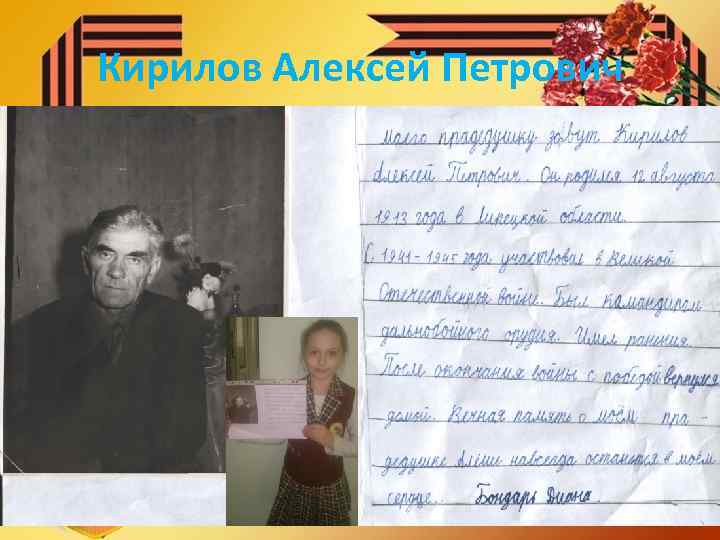 Кирилов Алексей Петрович
моего прадедушку зовут Кирилов
Алексей Петрович. Он родился 12 августа
1913 года в Липецкой области.
С 1941-1945 года участвовал в Великой
Отечественной войне. Был камандиром
дальнобойного орудия. Имел ранения.
После окончания войны с победой вернулся
домой. Вечная память о моём пра-
дедушке Алёше навсегда останется в моём
сердце. Бондарь Диана.